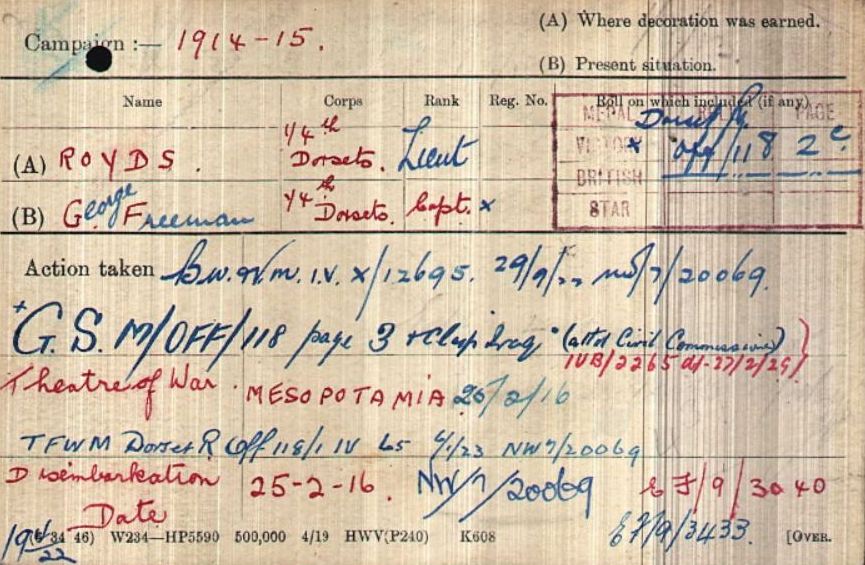 Campaign :— 1914-15.
(A) Where decoration was earned.
(B) Present situation.
Name Corps Rank Reg. No. Roll on which included (if any)
MEDAL PAGE
(A) ROYDS. 1/4th Dorsets. Lieut VICTORY x Off/118 2
BRITISH
(B) George Freeman 1/4th Dorsets. Capt. x STAR
Action taken B.W.V.M. I.V. x/12695. 29/9/22 NW/7/20069.
+ G.S. M/OFF/118 page 3 + Clasp Iraq (attd Civil Commissioner)
IVB/2265 d/-27/2/25/
Theatre of War. MESOPOTAMIA 25/2/16
TFWM Dorset R Off 118/1 IV 4/1/23 NW7/20069
Disembarkation 25-2-16. NW/7/20069 EF/9/3040
Date
(6 34 46) W234—HP5590 500,000 4/19 HWV(P240) K608 EF/9/3433. [OVER.